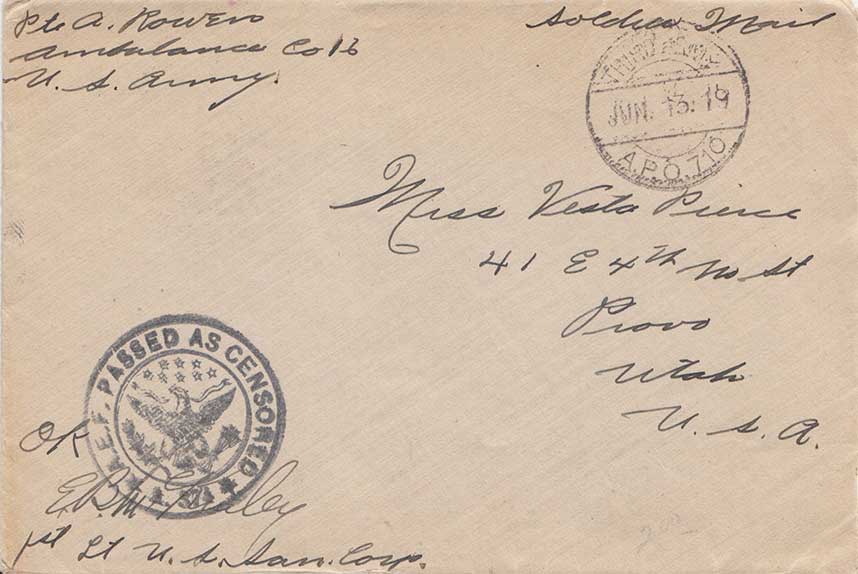 Pte A. Rowen
Ambulance Co 13
U. S. Army.
Soldiers Mail
JUN. 13. 19
A.P.O. 710
Miss Vesta Pierce
41 E 4th No St
Provo
Utah
U. S. A.
A.E.F. PASSED AS CENSORED
OK
E. B.
1st Lt U. S. San. Corp.